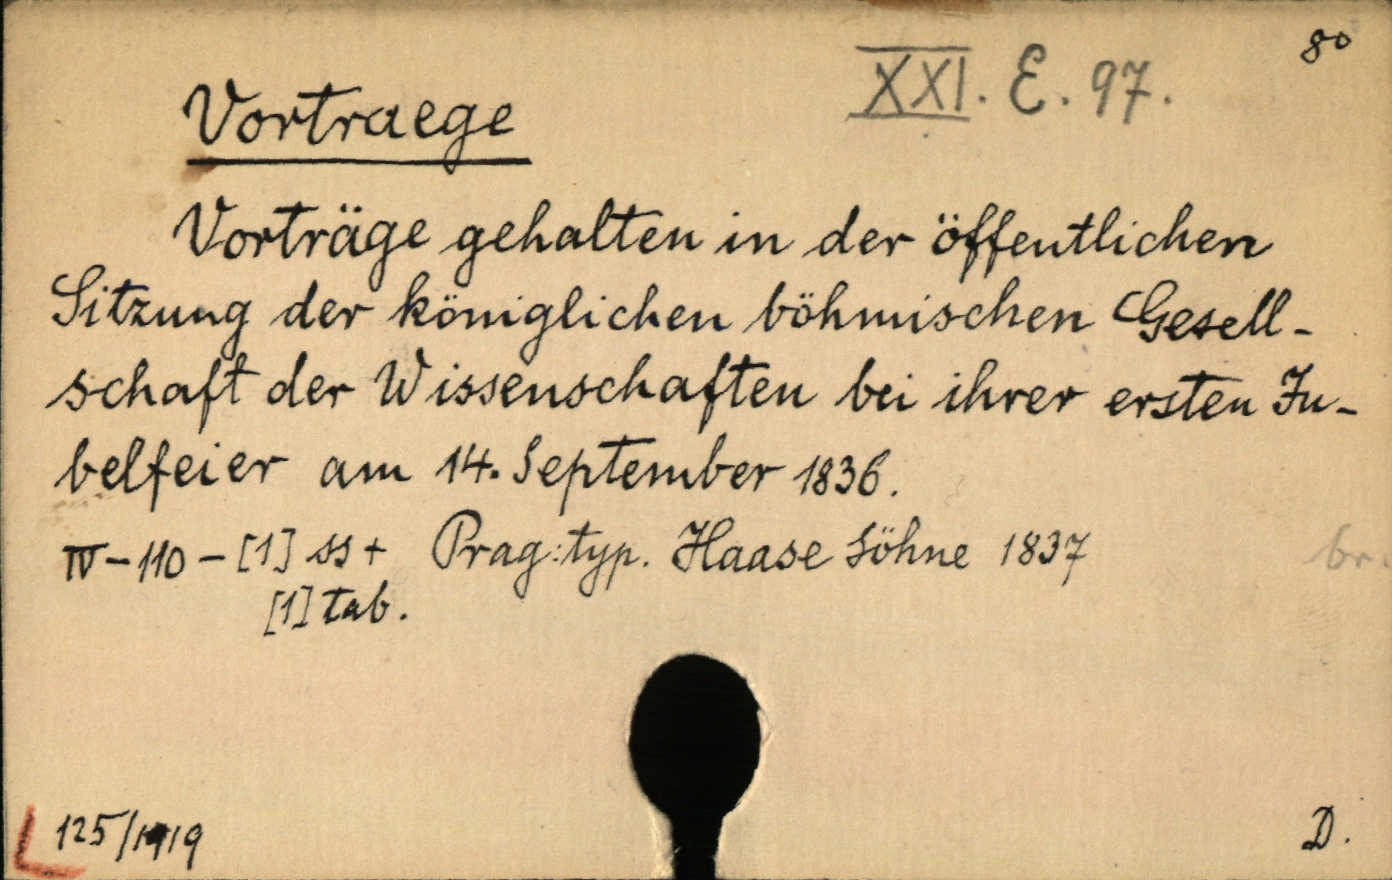 XXI. E. 97.
8°
Vortraege
Vorträge gehalten in der öffentlichen
Sitzung der königlichen böhmischen Gesell-
schaft der Wissenschaften bei ihrer ersten Ju-
belfeier am 14. September 1836.
IV-110-[1] ss + Prag: typ. Haase Söhne 1837
br.
[1] tab.
125/1919
D.